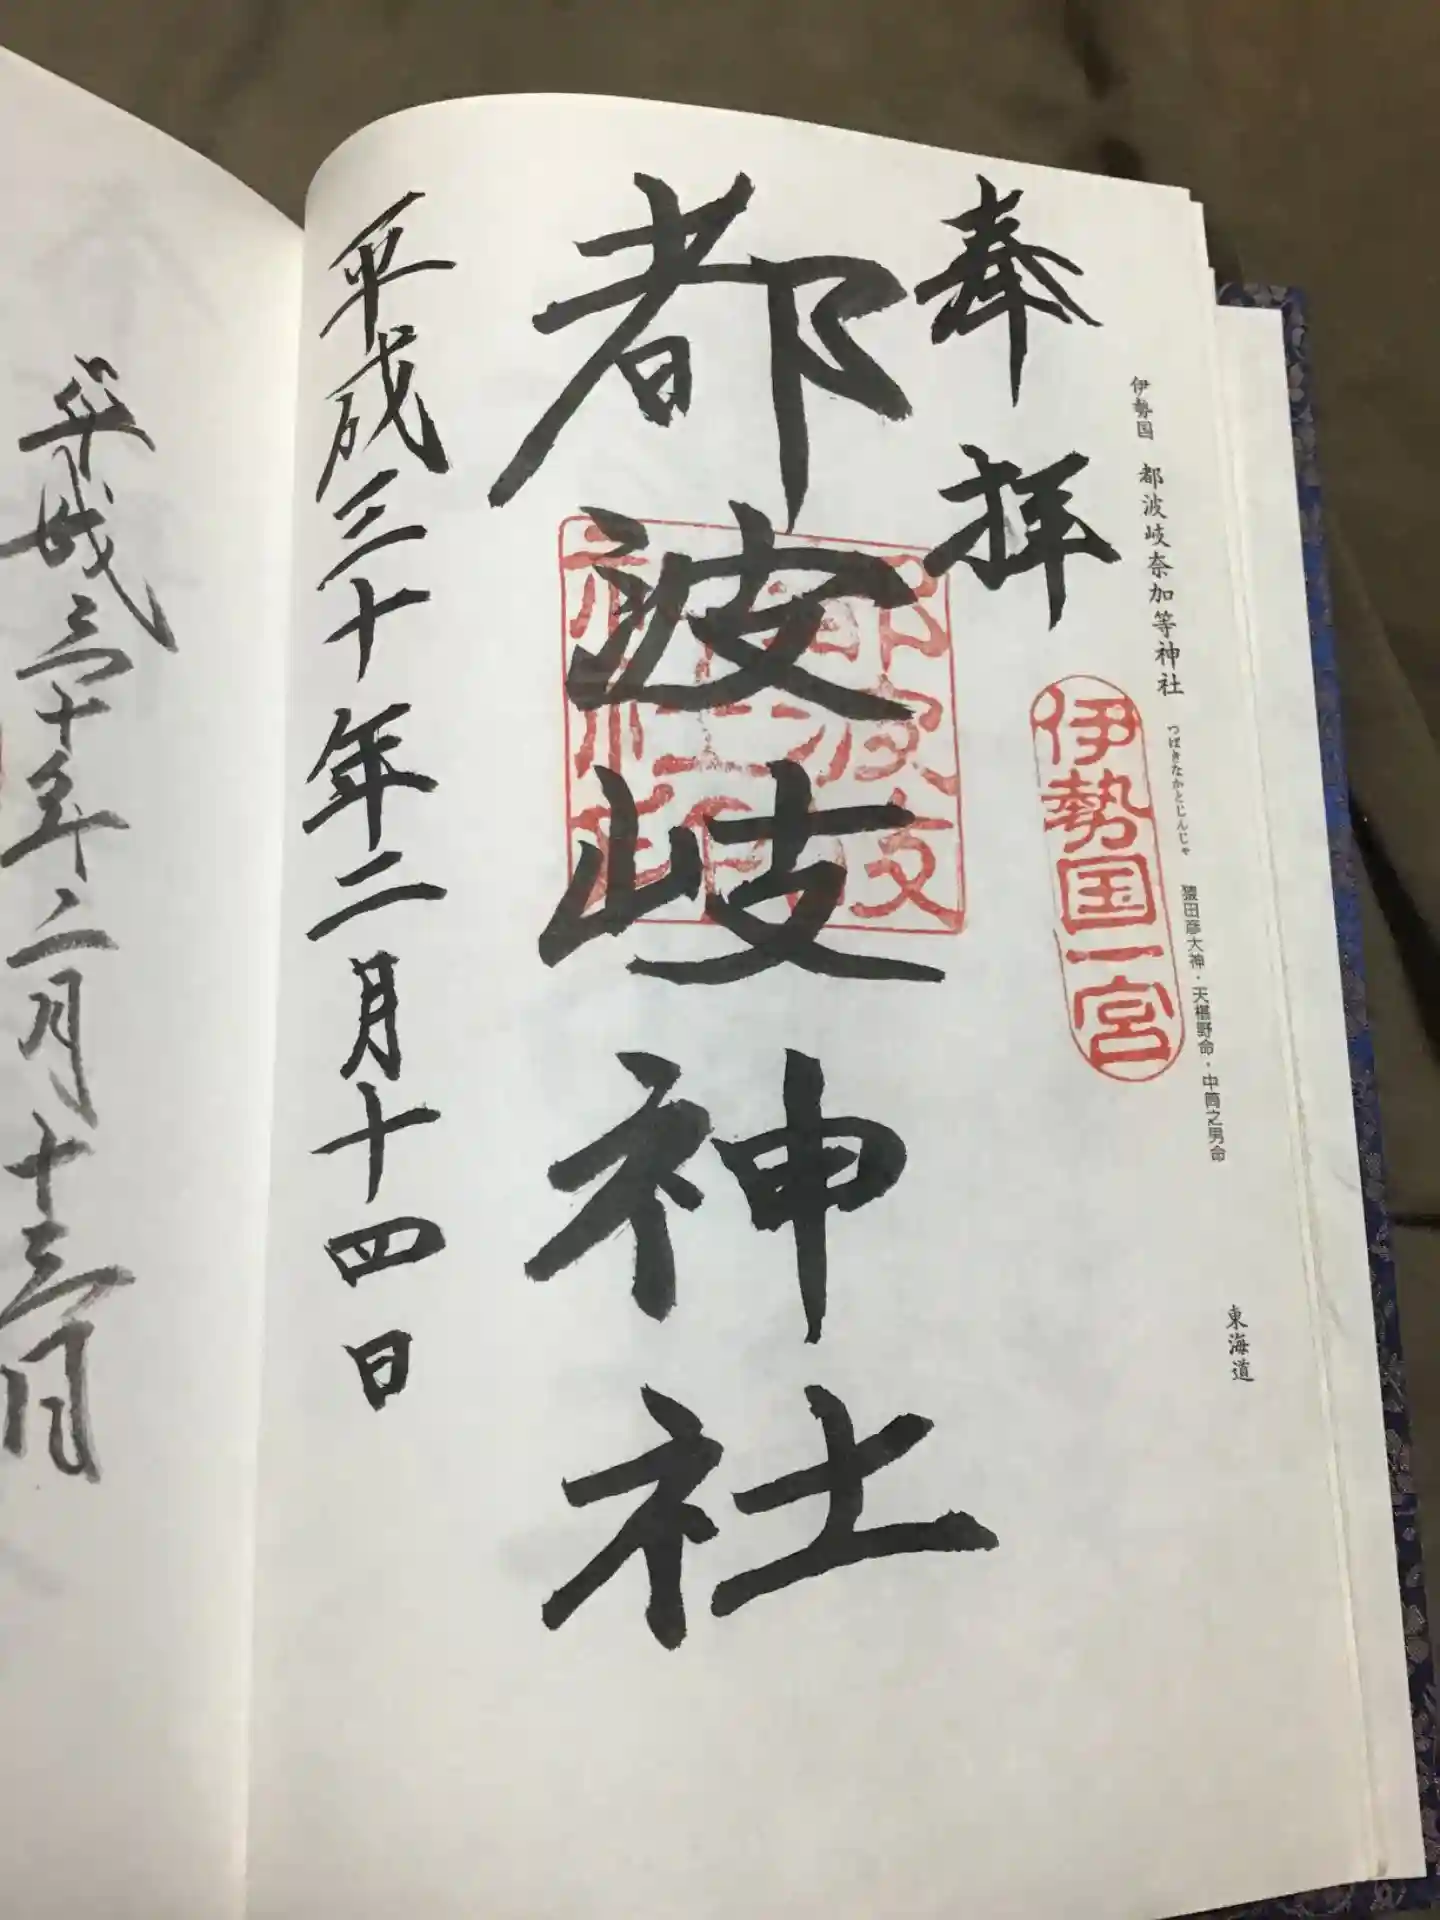 東海道
伊勢国 都波岐奈加等神社 つばきなかとじんじゃ 猿田彦大神・天椹野命・中筒之男命
伊勢国一宮
奉拝
都波岐神社
平成三十年二月十四日
平成三十年二月十三日